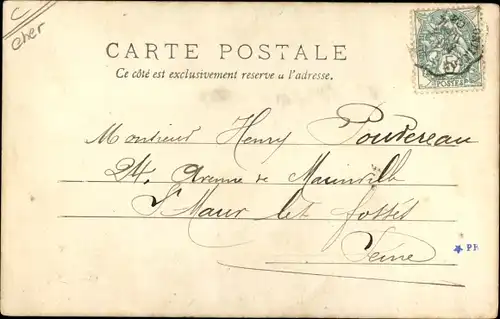 Cher
CARTE POSTALE
Ce côté est exclusivement reserve a l'adresse.
POSTES
Monsieur Henry Poudereau
24, Avenue de Marinville
St Maur les fossés
Seine
PR